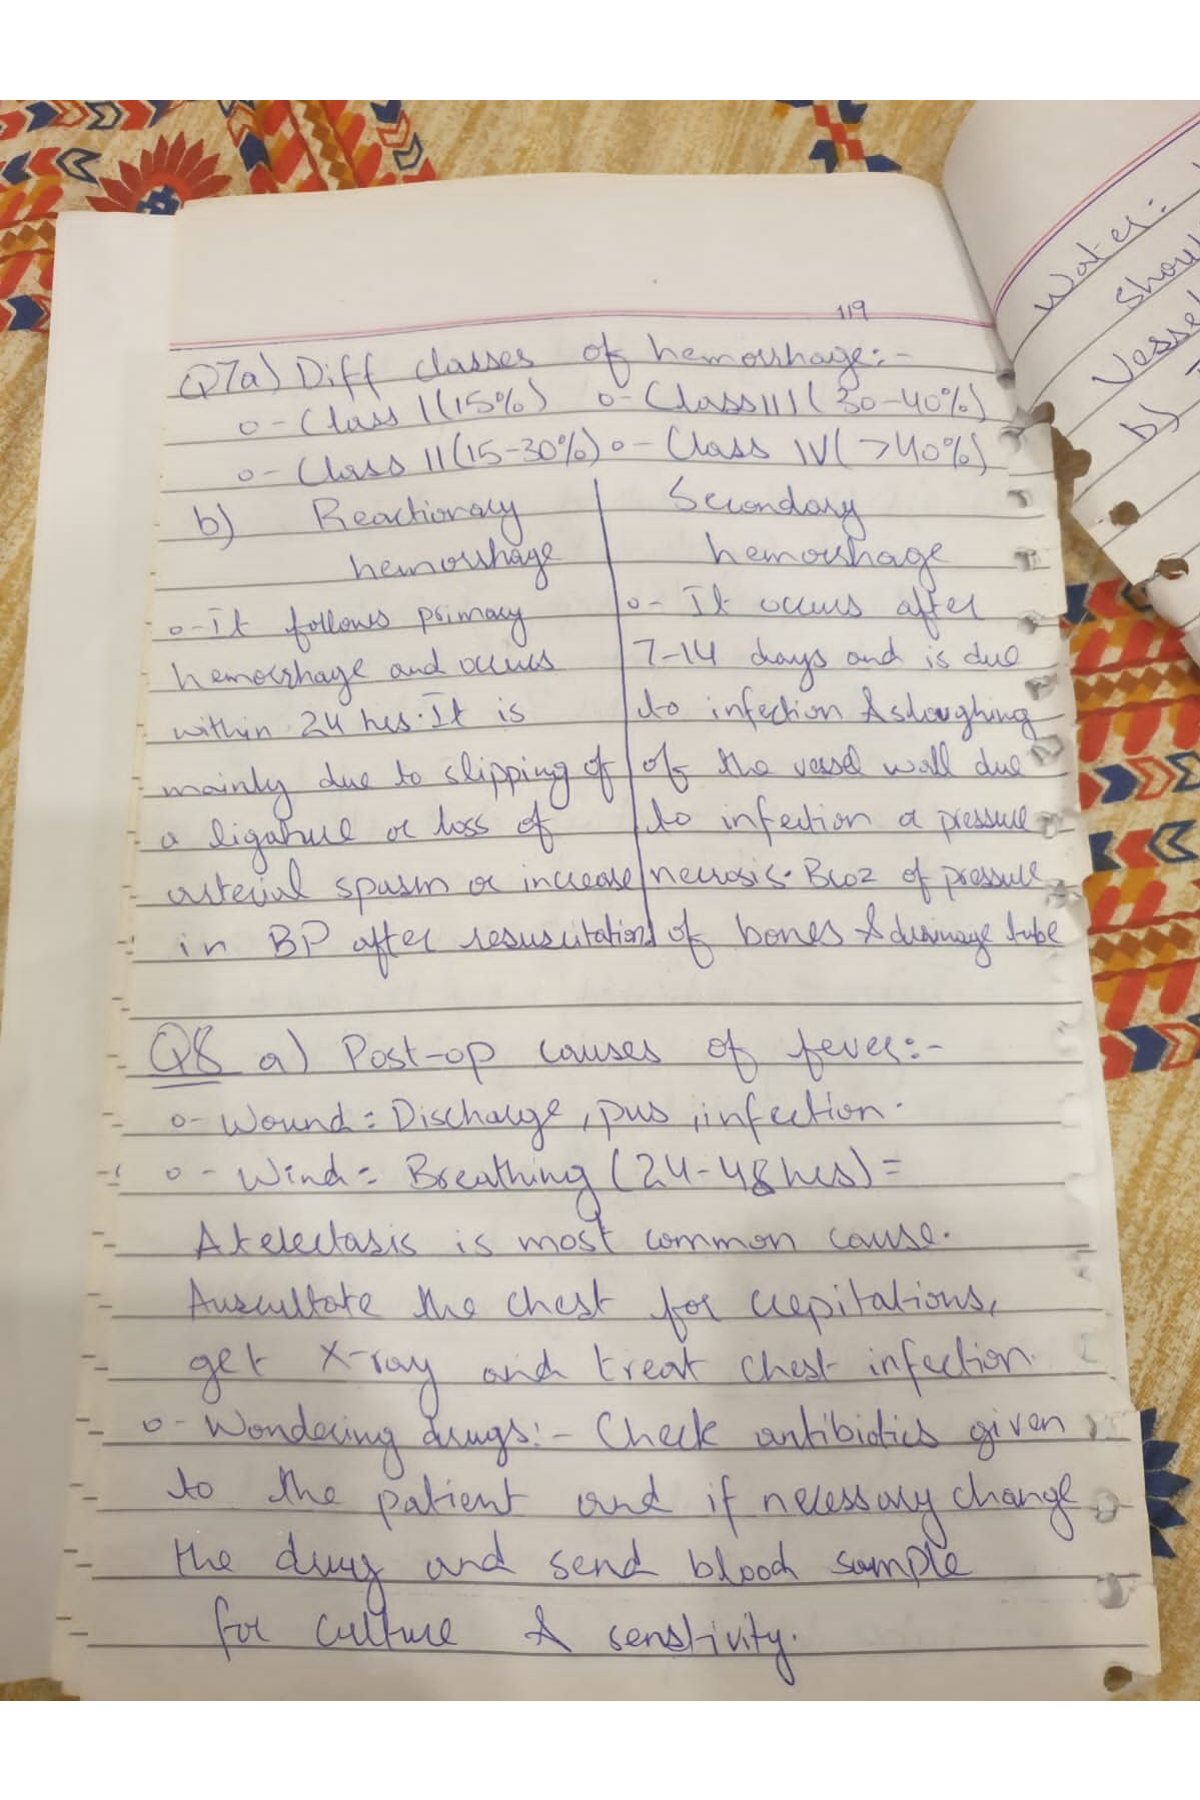 119
Q7a) Diff classes of hemorrhage:-
o- Class I (15%) o- Class III (30-40%)
o- Class II (15-30%) o- Class IV (>40%)
b) Reactionary hemorrhage
o- It follows primary
hemorrhage and occurs
within 24 hrs. It is
mainly due to slipping of
a ligature or loss of
arterial spasm or increase
in BP after resuscitation.
Secondary
hemorrhage
o- It occurs after
7-14 days and is due
to infection & sloughing
of the vessel wall due
to infection or pressure
necrosis. Bcoz of pressure
of bones & drainage tube
Q8 a) Post-op causes of fever:-
o- Wound: Discharge, pus, infection.
o- Wind: Breathing (24-48 hrs) =
Atelectasis is most common cause.
Auscultate the chest for crepitations,
get X-ray and treat chest infection.
o- Wondering drugs:- Check antibiotics given
to the patient and if necessary change
the drug and send blood sample
for culture & senstivity.
Water:
Shou
Vesse
b)